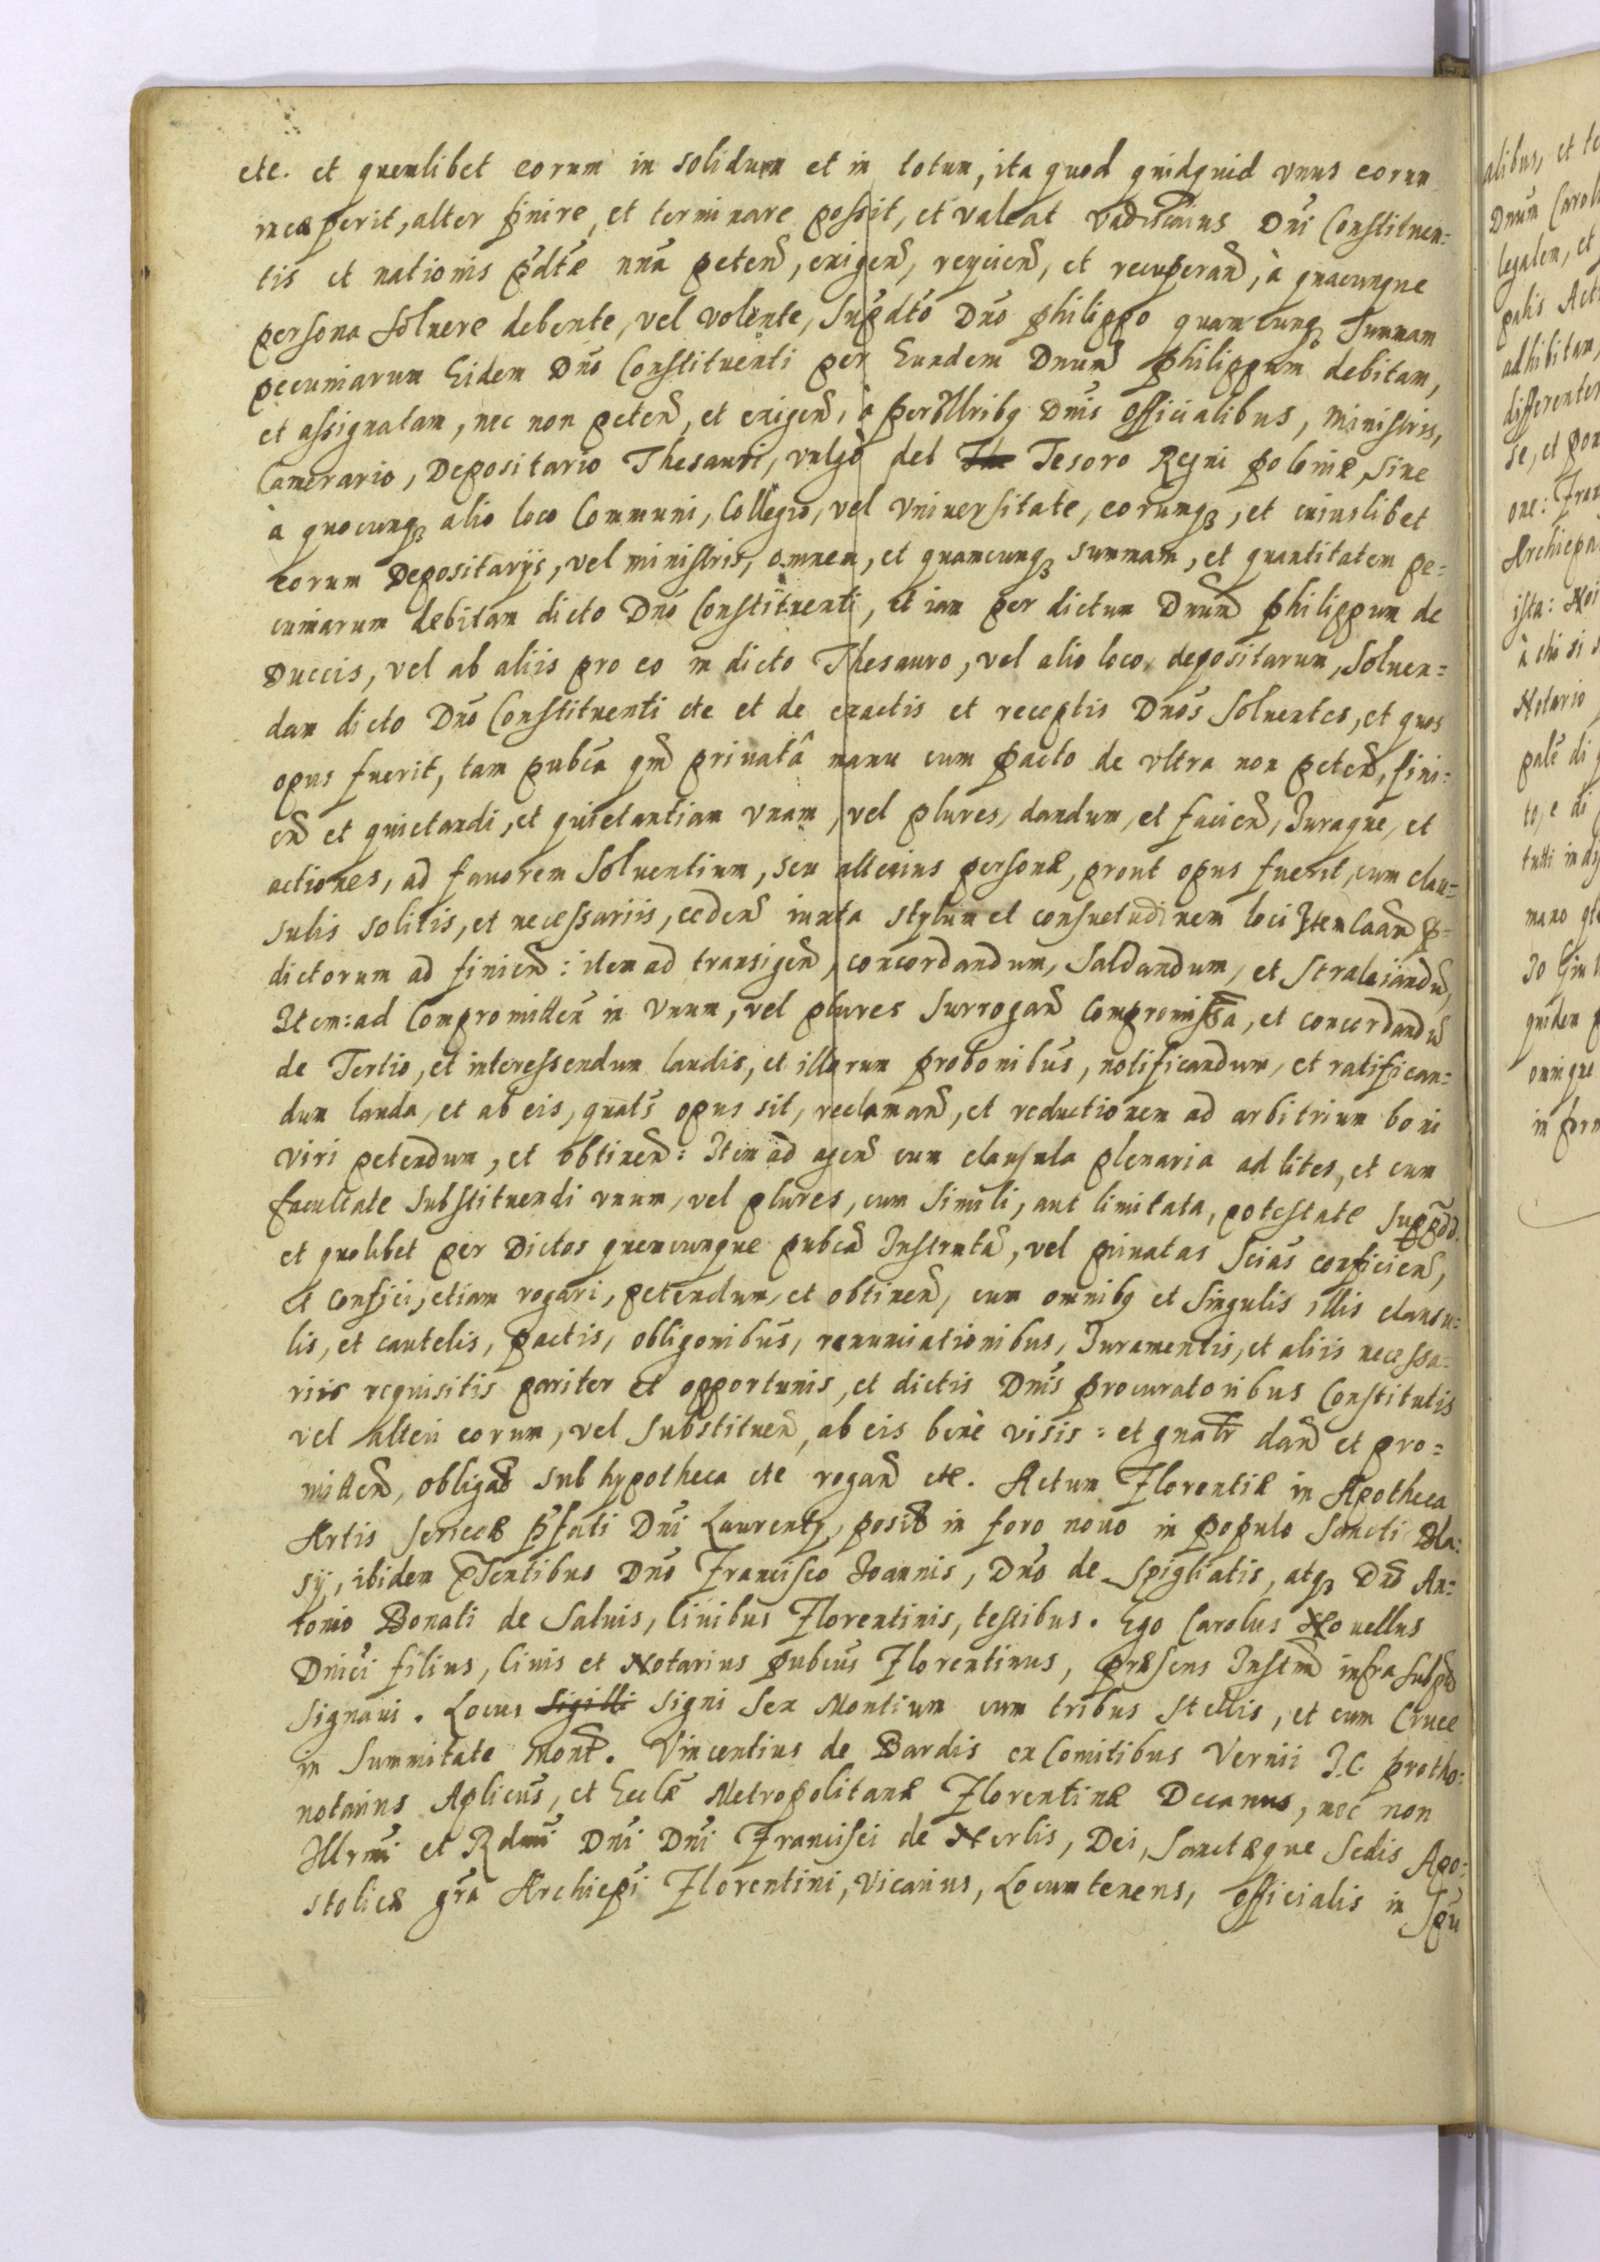 etc. et quemlibet eorum in solidum et in totum, ita quod quidquid vnus eorum
incæperit, alter finire, et terminare possit, et valeat Dñi Constituen=
tis et nationis pdtæ petend, exigend, reyciend, et recuperand, à quacunque
persona soluere debente, vel volente, supdto Dño philippo quamcunq summam
pecuniarum Eidem Dño Constituenti per Eundem Dnum philippum debitam,
et assignatam, nec non petend, et exigend, à Dñis officialibus, ministris,
Camerario, Depositario Thesauri, vulgò del The Tesoro Regni poloniæ, siue
à quocunq alio loco Communi, Collegio, vel vniuersitate, eorumq, et cuiuslibet
eorum Depositarijs, vel ministris, omnem, et quamcunq summam, et quantitatem pe=
cuniarum debitam dicto Dño Constituenti, et iam per dictum Dnum philippum de
Duccis, vel ab aliis pro eo in dicto Thesauro, vel alio loco depositarum, soluen=
dam dicto Dño Constituenti etc et de exactis et receptis Dños soluentes, et quos
opus fuerit, tam pubca qm priuatâ manu cum pacto de vltra non petend, fini=
end et quietandi, et quietantiam vnam, vel plures, dandum, et faciend, Juraque, et
actiones, ad fauorem soluentium, seu alterius personæ, prout opus fuerit, cum clau=
sulis solitis, et necessariis, cedend iuxta stylum et consuetudinem loci Item p=
dictorum ad finiend: item ad transigend, concordandum, saldandum, et stralciandu,
Item: ad Compromittend in vnum, vel plures surrogand Compromissa, et concordandu
de Tertio, et interessendum laudis, et illorum probonibus, notificandum, et ratifican=
dum lauda, et ab eis, quats opus sit, reclamand, et reductionem ad arbitrium boni
viri petendum, et obtinend: Item ad agend cum clausula plenaria ad lites, et cum
facultate substituendi vnum, vel plures, cum simili, aut limitata, potestate suppdd.
et quolibet per Dictos quemcunque pubca Instruta, vel priuatas conficiend,
et confici, etiam rogari, petendum, et obtinend, cum omnibq et singulis illis clausu=
lis, et cautelis, pactis, obligonibus, renunciationibus, Juramentis, et aliis necessa=
riis requisitis pariter et opportunis, et dictis Dñis procuratoribus Constitutis
vel alteri eorum, vel substituend, ab eis benè visis: et gnatr dand et pro=
mittend, obligad sub hypotheca etc rogand etc. Actum Florentiæ in Apotheca
Artis sericæ pfati Dñi Laurentij, posit in foro nouo in populo sancti Bla=
sij, ibidem pTentibus Dño Francisco Joannis, Dño de Spigliatis, atq Dño An=
tonio Donati de Saluis, Ciuibus Florentinis, testibus. Ego Carolus Nouellus
Dnici filius, Ciuis et Notarius pubcus Florentinus, præsens Instm infra
signaui. Locus sigilli signi sex Montium cum tribus stellis, et cum Cruce
in summitate Mont. Vincentius de Bardis ex Comitibus Vernii J.C. protho:
notarius Aplicus, et Ecclæ Metropolitanæ Florentinæ Decanus, nec non
Illrmi et Rdmi Dñi Dñi Francisci de Nerlis, Dei, sanctæque sedis Apo:
stolicæ gra Archiepi Florentini, Vicarius, Locumtenens, officialis in spu
alibus, et te
Dnum Carol
legalem, et
palis Act
adhibitam,
differenter
se, et pon
one: Fran
Archiepa
ista: Noi
à chi si
Notario
pale di
to, e di
tutti
mano
Jo Giu
quidem
omnique
in form